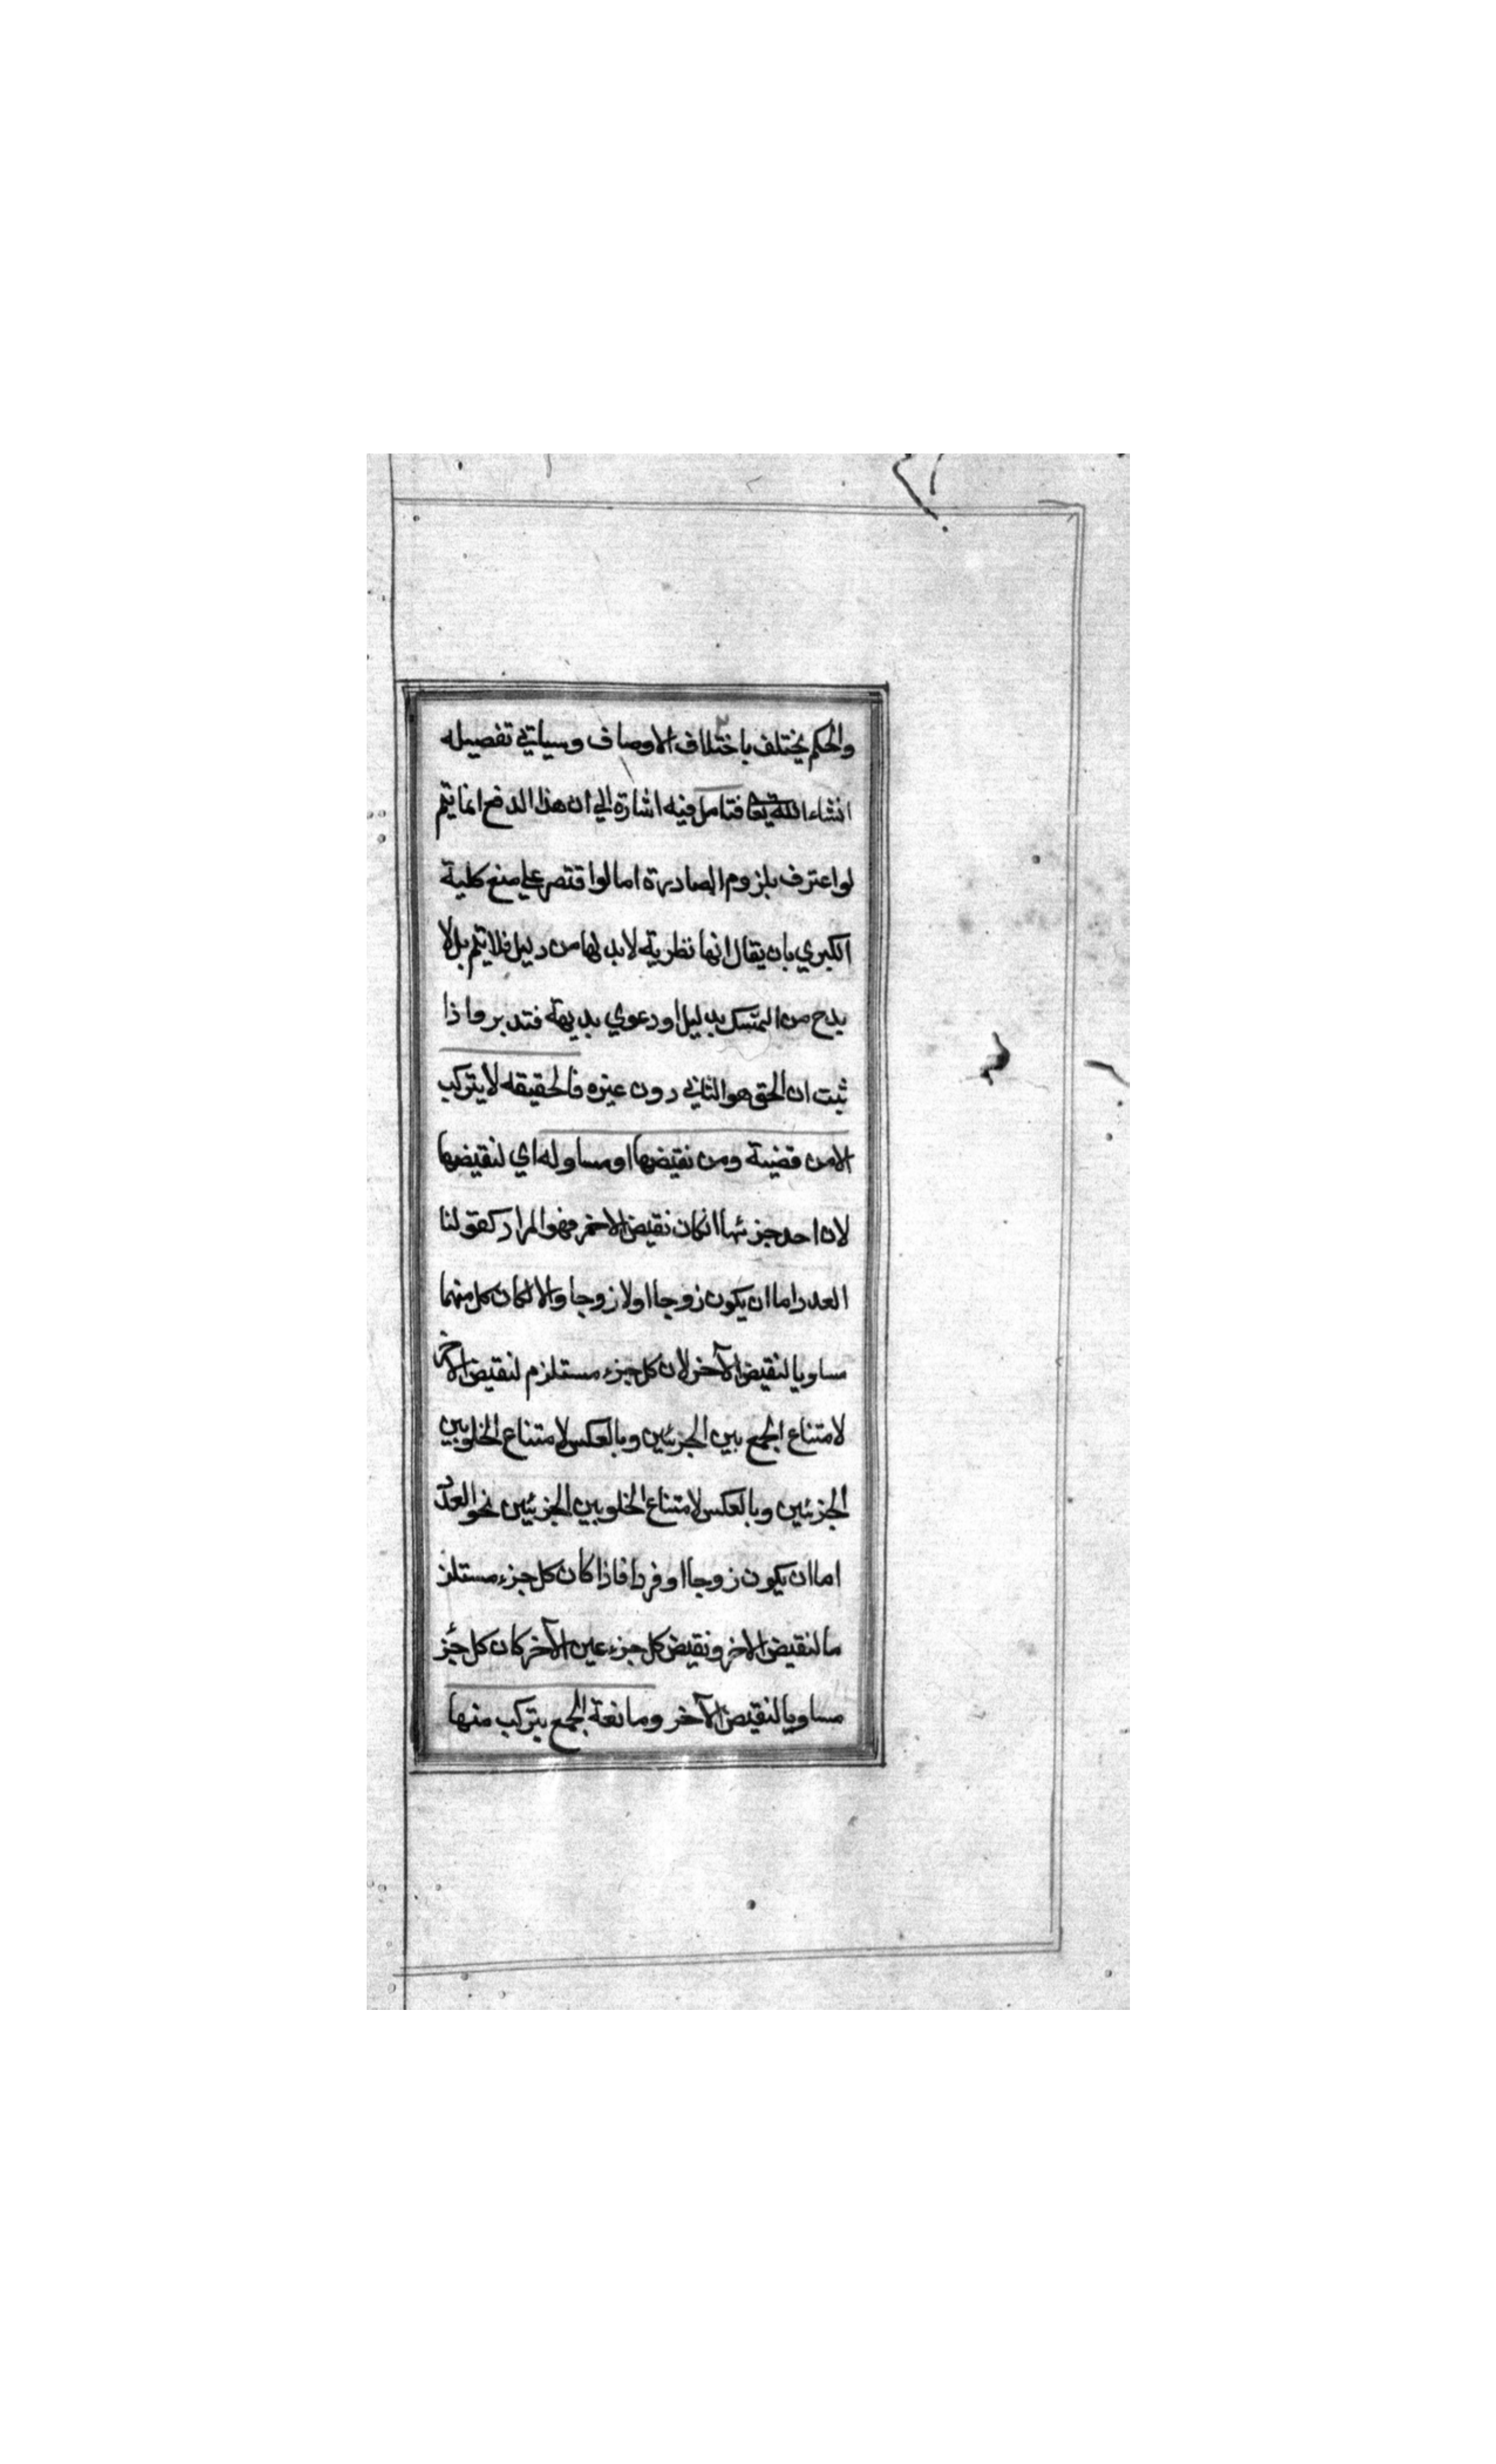 والحكم يختلف باختلاف الاوصاف وسياتي تفصيله
انشاء الله تعا فتامل فيه اشارة الي ان هذا الدفع انما يتم
لو اعترف بلزوم المصادرة اما لو اقتصر علي منع كلية
الكبري بان يقال انها نظرية لابد لها من دليل فلا يتم بل لا
بدح من التمسك بدليل او دعوي بديهة فتدبر فاذا
ثبت ان الحق هو الثاني دون غيره فالحقيقه لا يتركب
الا من قضية ومن نقيضها او مساو له اي لنقيضها
لان احد جزئها انكان نقيض الاخر فهو المراد كقولنا
العدد اما ان يكون زوجا او لا زوجا والا لكان كل منهما
مساويا لنقيض الآخر لان كل جزء مستلزم لنقيض الاخر
لامتناع الجمع بين الجزئين وبالعكس لامتناع الخلو بين
الجزئين وبالعكس لامتناع الخلو بين الجزئين نحو العدد
اما ان يكون زوجا او فردا فاذا كان كل جزء مستلز
ما لنقيض الاخر ونقيض كل جزء عين الآخر كان كل جزء
مساويا لنقيض الآخر ومانعة الجمع يتركب منها